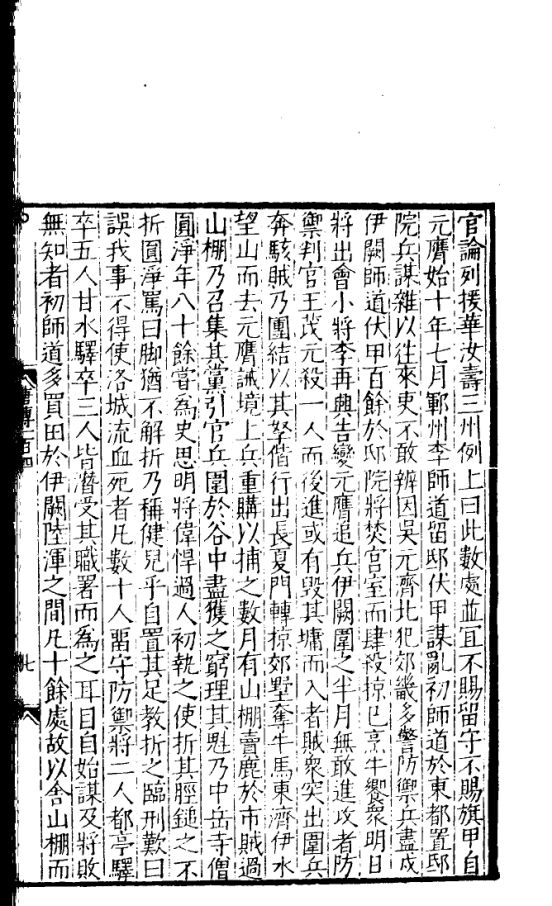 官論列援華汝壽三州例上曰此數處並宜不賜留守不賜旗甲自
元膺始十年七月鄆州李師道留邸伏甲謀亂初師道於東都置邸
院兵諜雜以往來吏不敢辨因吳元濟北犯郊畿多警防禦兵盡戍
伊闕師道伏甲百餘於邸院將焚宮室而肆殺掠已烹牛饗衆明日
將出會小將李再興告變元膺追兵伊闕圍之半月無敢進攻者防
禦判官王茂元殺一人而後進或有毀其墉而入者賊衆突出圍兵
奔駭賊乃團結以其孥偕行出長夏門轉掠郊墅奪牛馬東濟伊水
望山而去元膺誡境上兵重購以捕之數月有山棚賣鹿於市賊過
山棚乃召集其黨引官兵圍於谷中盡獲之窮理其魁乃中岳寺僧
圓淨年八十餘嘗為史思明將偉悍過人初執之使折其脛鎚之不
折圓淨罵曰脚猶不解折乃稱健兒乎自置其足教折之臨刑歎曰
誤我事不得使洛城流血死者凡數十人留守防禦將二人都亭驛
卒五人甘水驛卒三人皆潛受其職署而為之耳目自始謀及將敗
無知者初師道多買田於伊闕陸渾之間凡十餘處故以舍山棚而
七